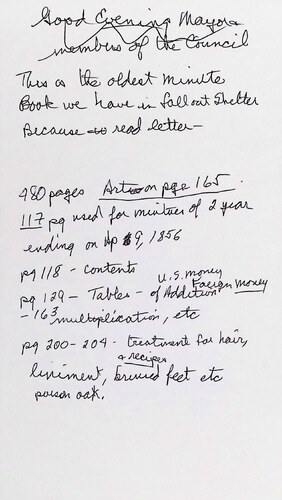 Good Evening Mayor
members of the Council
This is the oldest minute
Book we have in Fallout Shelter
Because read letter—
480 pages Art on page 165.
117 pg used for minutes of 2 year
ending on Ap 9, 1856
pg 118 - contents
pg 129 - Tables - of Addition U.S. money Foreign Money
- 163 multiplication, etc
pg 200-204 - treatment for hair,
& recipes
liniment, bruised feet etc
poison oak.